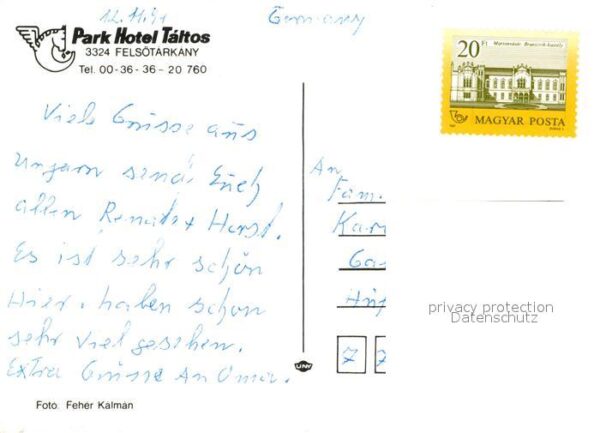 12.11.91
Germany
Park Hotel Táltos
3324 FELSŐTARKANY
Tel. 00-36-36-20 760
20 Ft
Martonvásár Brunszvik-kastély
MAGYAR POSTA
Viele Grüsse aus
Ungarn send. Euch
allen Renate + Horst.
Es ist sehr schön
Hier. haben schon
sehr viel gesehen.
Extra Grüsse An Oma.
An
Fam.
Kar
Ga
Hüf
7 7
privacy protection
Datenschutz
Foto: Fehér Kálmán